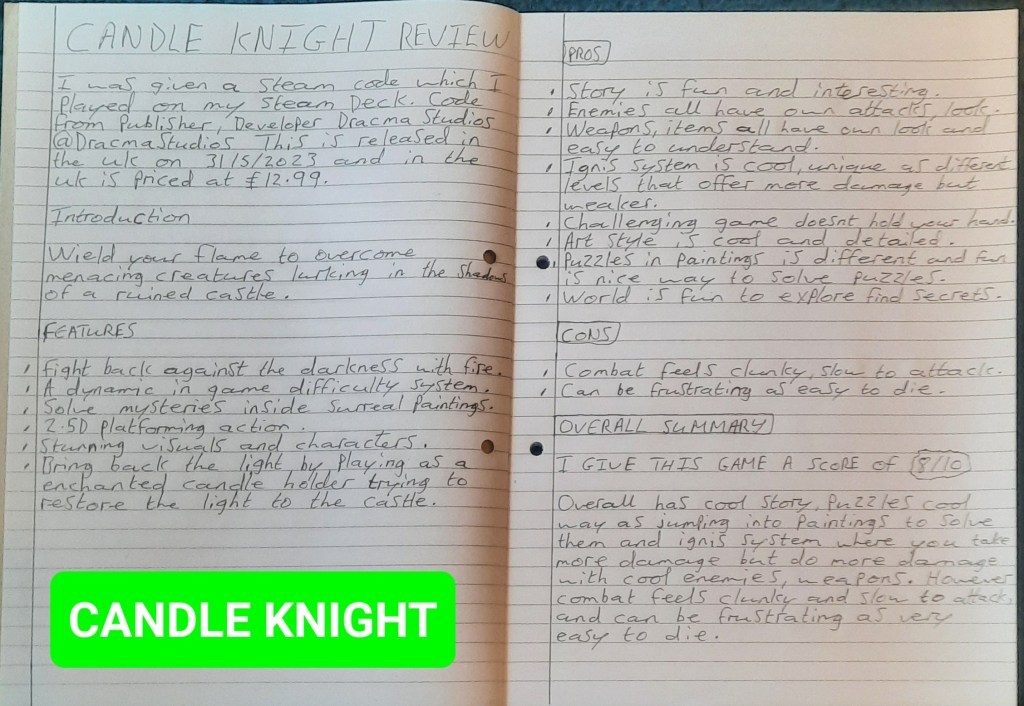 CANDLE KNIGHT REVIEW
I was given a Steam code which I
Played on my Steam Deck. Code
from Publisher, Developer Dracma Studios
@DracmaStudios This is released in
the uk on 31/5/2023 and in the
uk is priced at £12.99.
Introduction
Wield your flame to overcome
menacing creatures lurking in the shadows
of a ruined castle.
FEATURES
Fight back against the darkness with fire.
A dynamic in game difficulty system.
Solve mysteries inside surreal paintings.
2.5D Platforming action.
Stunning visuals and characters.
Bring back the light by playing as a
enchanted candle holder trying to
restore the light to the castle.
CANDLE KNIGHT
PROS
Story is fun and interesting.
Enemies all have own attacks, look.
Weapons, items all have own look and
easy to understand.
Ignis system is cool, unique as different
levels that offer more damage but
weaker.
Challenging game doesnt hold your hand.
Art style is cool and detailed.
Puzzles in paintings is different and fun
is nice way to solve puzzles.
World is fun to explore find secrets.
CONS
Combat feels clunky, slow to attack.
Can be frustrating as easy to die.
OVERALL SUMMARY
I GIVE THIS GAME A SCORE OF 8/10
Overall has cool story, Puzzles cool
way as jumping into paintings to solve
them and ignis system where you take
more damage but do more damage
with cool enemies, weapons. However
combat feels clunky and slow to attack,
and can be frustrating as very
easy to die.